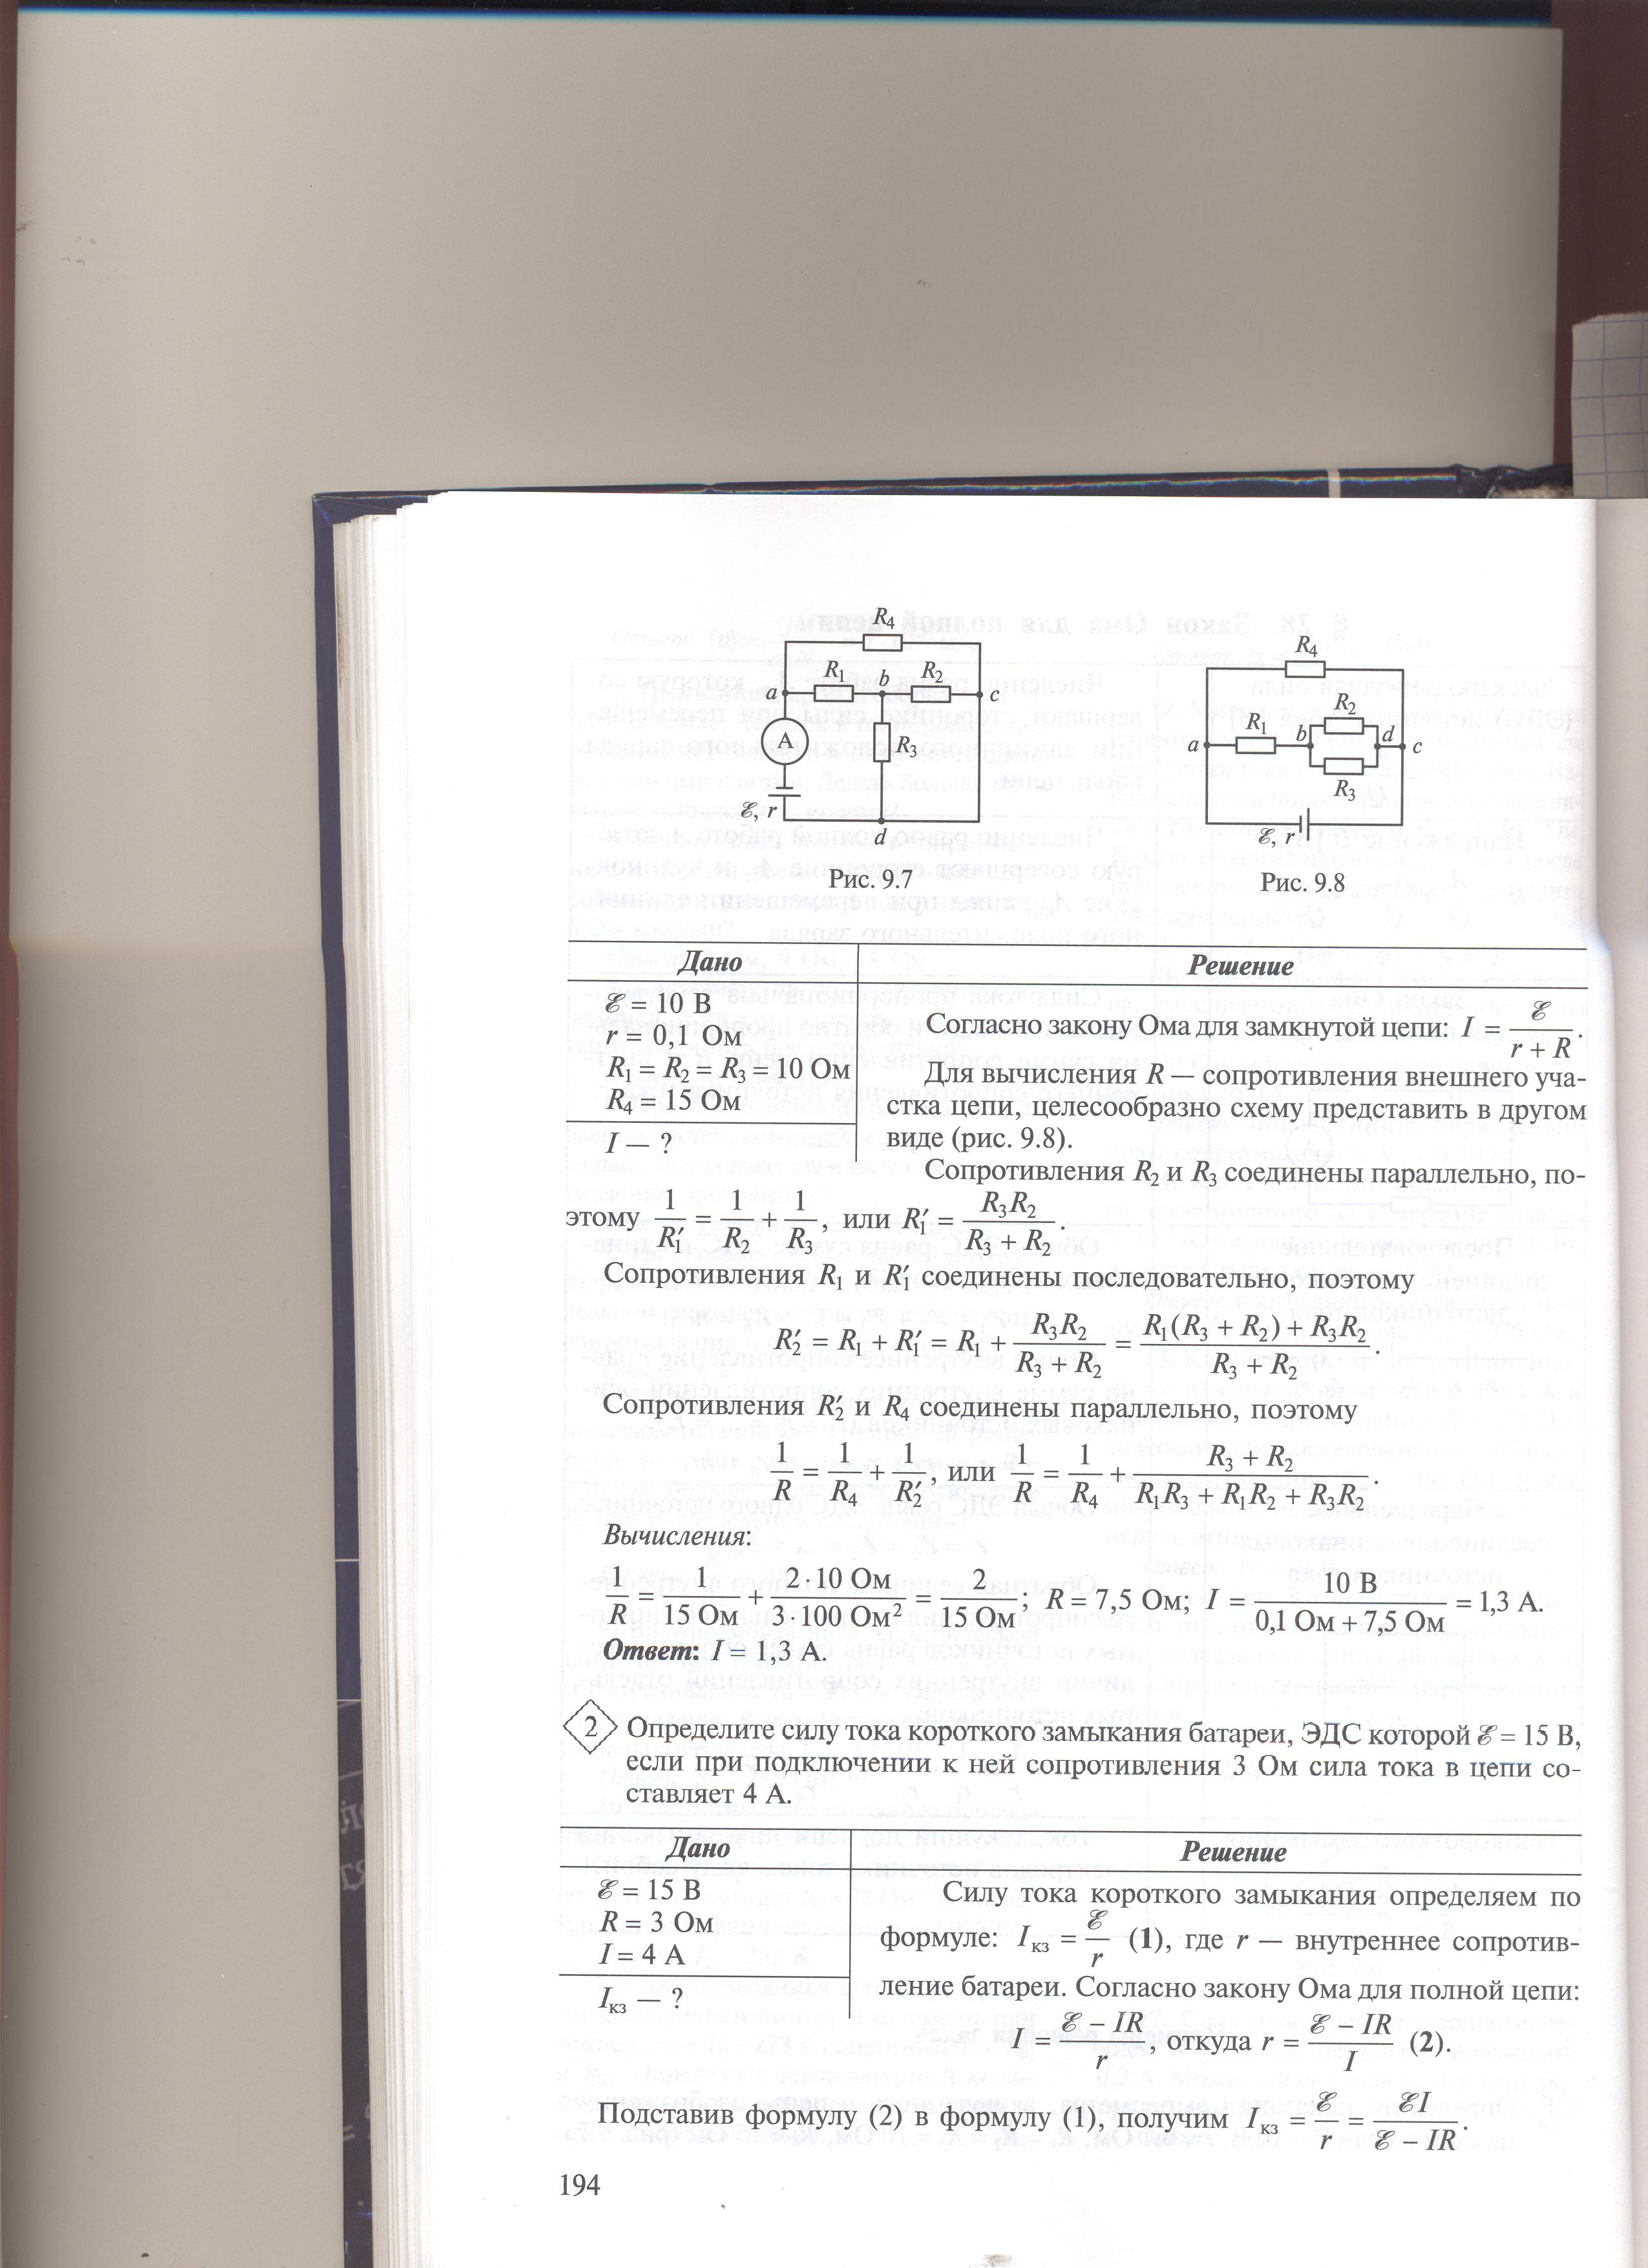 R₄
R₁ b R₂
a c
A
R₃
ℰ, r
d
Рис. 9.7
R₄
R₂
R₁ b d
a c
R₃
ℰ, r
Рис. 9.8
Дано
ℰ = 10 В
r = 0,1 Ом
R₁ = R₂ = R₃ = 10 Ом
R₄ = 15 Ом
I — ?
Решение
Согласно закону Ома для замкнутой цепи: I = ℰ/(r + R).
Для вычисления R — сопротивления внешнего уча-
стка цепи, целесообразно схему представить в другом
виде (рис. 9.8).
Сопротивления R₂ и R₃ соединены параллельно, по-
этому 1/R₁′ = 1/R₂ + 1/R₃, или R₁′ = R₃R₂/(R₃ + R₂).
Сопротивления R₁ и R₁′ соединены последовательно, поэтому
R₂′ = R₁ + R₁′ = R₁ + R₃R₂/(R₃ + R₂) = (R₁(R₃ + R₂) + R₃R₂)/(R₃ + R₂).
Сопротивления R₂′ и R₄ соединены параллельно, поэтому
1/R = 1/R₄ + 1/R₂′, или 1/R = 1/R₄ + (R₃ + R₂)/(R₁R₃ + R₁R₂ + R₃R₂).
Вычисления:
1/R = 1/(15 Ом) + (2·10 Ом)/(3·100 Ом²) = 2/(15 Ом); R = 7,5 Ом; I = 10 В/(0,1 Ом + 7,5 Ом) = 1,3 А.
Ответ: I = 1,3 А.
2 Определите силу тока короткого замыкания батареи, ЭДС которой ℰ = 15 В,
если при подключении к ней сопротивления 3 Ом сила тока в цепи со-
ставляет 4 А.
Дано
ℰ = 15 В
R = 3 Ом
I = 4 А
Iкз — ?
Решение
Силу тока короткого замыкания определяем по
формуле: Iкз = ℰ/r (1), где r — внутреннее сопротив-
ление батареи. Согласно закону Ома для полной цепи:
I = (ℰ – IR)/r, откуда r = (ℰ – IR)/I (2).
Подставив формулу (2) в формулу (1), получим Iкз = ℰ/r = ℰI/(ℰ – IR).
194